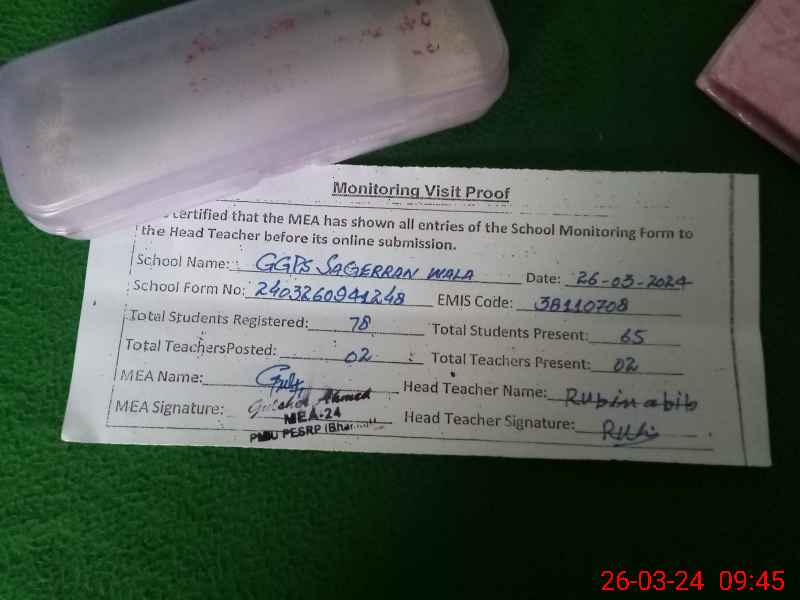 Monitoring Visit Proof
certified that the MEA has shown all entries of the School Monitoring Form to
the Head Teacher before its online submission.
School Name: GGPS SAGERRAN WALA Date: 26-03-2024
School Form No: 2403260941248 EMIS Code: 38110708
Total Students Registered: 78 Total Students Present: 65
Total TeachersPosted: 02 Total Teachers Present: 02
MEA Name: Head Teacher Name: Rubinabib
MEA Signature: Ahmed Head Teacher Signature: Rubi
MEA-24
PMIU PESRP
26-03-24 09:45